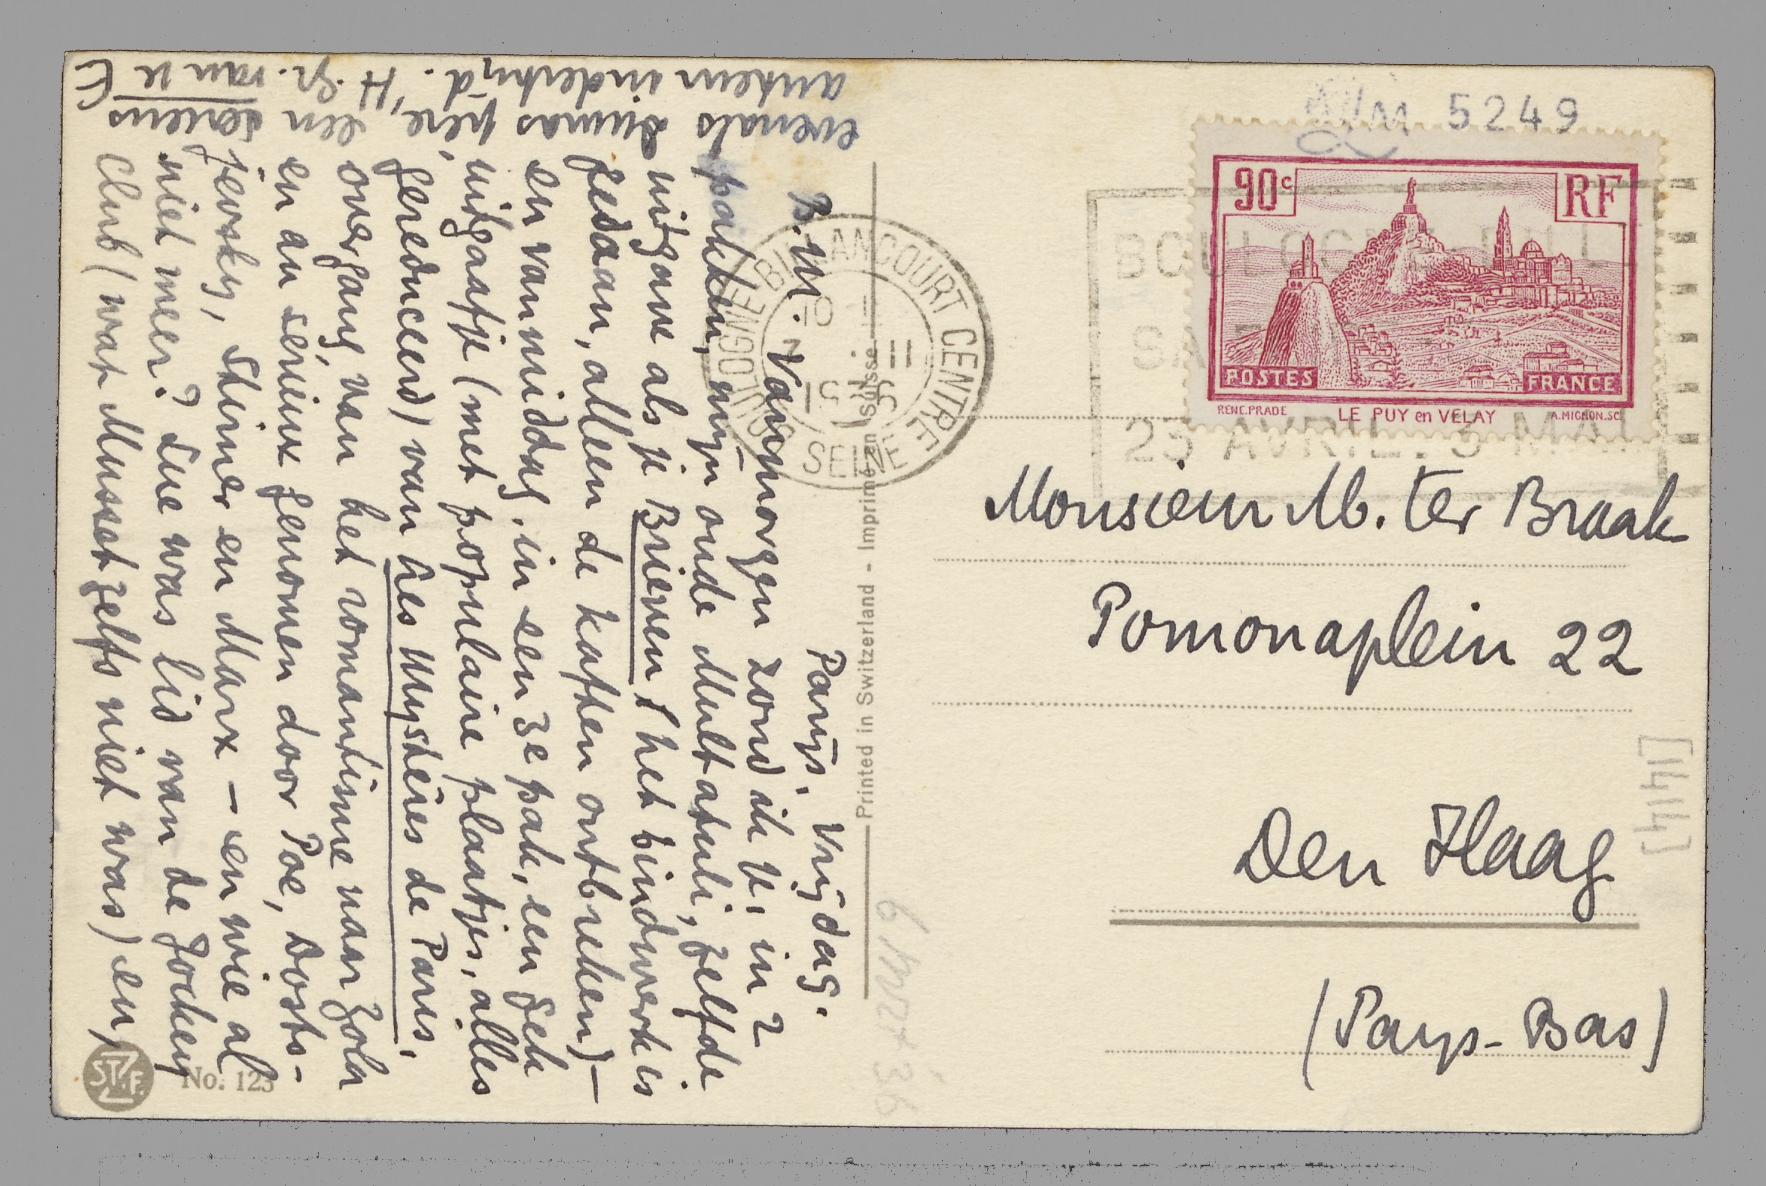 Parijs, Vrijdag.
B.M. Vanmorgen zond ik U, in 2
pakken, mijn oude Multatuli, zelfde
uitgave als je Brieven (het bindwerk is
gedaan, alleen de kaften ontbreken) —
en vanmiddag, in een 3e pak, een gek
uitgaafje (met populaire plaatjes, alles
gereduceerd) van Les Mystères de Paris,
overgang van het romantisme naar Zola
en au sérieux genomen door Poe, Dosto-
jevsky, Stirner en Marx — en wie al
niet meer? Sue was lid van de Jockey
Club (wat Musset zelfs niet was) en,
evenals Dumas père, een serieus
auteur indertijd. H. gr. van je E
Monsieur M. ter Braak
Pomonaplein 22
Den Haag
(Pays-Bas)
5249
90c
RF
POSTES
FRANCE
RENE.PRADE
LE PUY en VELAY
A.MIGNON.SC.
BOULOGNE BILLANCOURT CENTRE
SEINE
25 AVRIL. 3 MAI
Printed in Switzerland - Imprimé en Suisse
[414]
6 maart 36
STZF.
No. 123